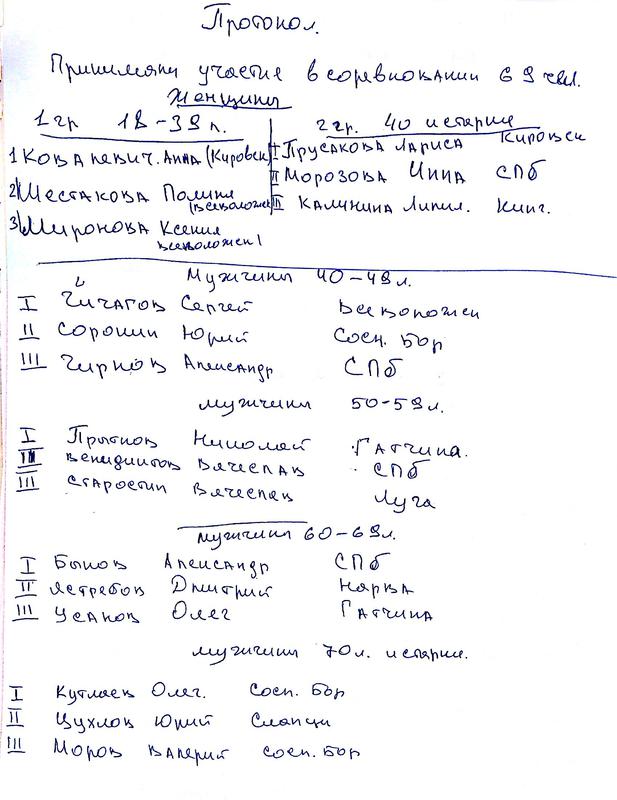 Протокол.
Принимали участие в соревновании 69 чел.
Женщины
1 гр 18-39 л.
1 Ковалевич. Анна (Кировск)
2) Шестакова Полина
(Всеволожск)
3) Миронова Ксения
Всеволожск)
2 гр. 40 и старше
I Прусакова Лариса Кировск
II Морозова Инна СПб
III Калинина Лилил. Кинг.
Мужчины 40-49 л.
I Чичагов Сергей Всеволожск
II Сорокин Юрий Сосн. Бор
III Чирков Александр СПб
мужчины 50-59 л.
I Прытков Николай Гатчина.
II Венидиктов Вячеслав СПб
III Старостин Вячеслав Луга
мужчины 60-69 л.
I Быков Александр СПб
II Ястребов Дмитрий Нарва
III Усанов Олег Гатчина
мужчины 70 л. и старше.
I Кутлаев Олег. Сосн. Бор
II Цухлов Юрий Сланцы
III Моров Валерий Сосн. Бор